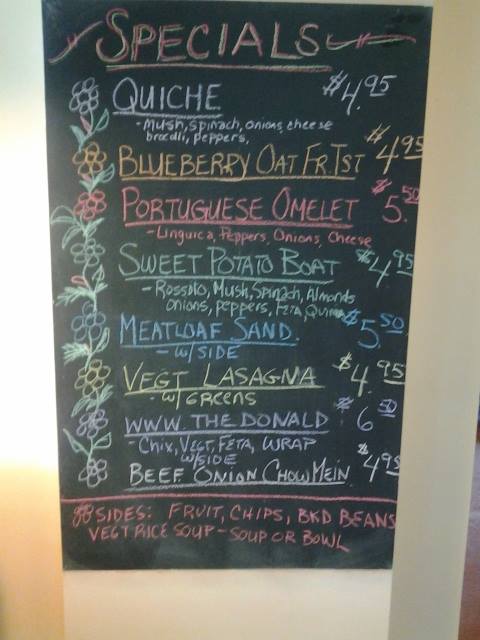 SPECIALS
QUICHE $4.95
- Mush, spinach, onions, cheese
brocolli, peppers,
BLUEBERRY OAT FR TST $4.95
PORTUGUESE OMELET $5.50
- Linguica, Peppers, Onions, Cheese
SWEET POTATO BOAT $4.95
- Rossoto, Mush, Spinach, Almonds
onions, peppers, Feta, Quinoa
MEATLOAF SAND. $5.50
- w/SIDE
VEGT LASAGNA $4.95
- w/GREENS
WWW. THE DONALD $6.50
- Chix, VEGT, FETA, WRAP
w/SIDE
BEEF ONION CHOW MEIN $4.95
SIDES: FRUIT, CHIPS, BKD BEANS
VEGT RICE SOUP - SOUP OR BOWL